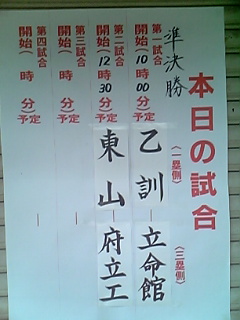 本日の試合
準決勝
(一塁側) (三塁側)
第一試合
開始(10時00分)予定
乙訓―立命館
第二試合
開始(12時30分)予定
東山―府立工
第三試合
開始(時 分)予定
―
第四試合
開始(時 分)予定
―